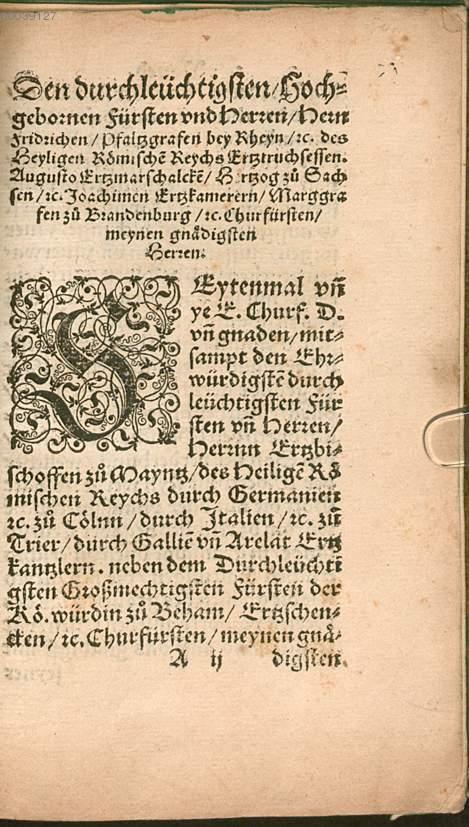 00039127
Den durchleüchtigsten/Hoch⸗
gebornen Fürsten vnd Herren/Hern
Fridrichen/Pfaltzgrafen bey Rheyn/ꝛc. des
Heyligen Römischē Reychs Ertztruchsessen.
Augusto Ertzmarschalckē/Hertzog zů Sach
sen/ꝛc. Joachimen Ertzkamerern/Marggra
fen zů Brandenburg/ꝛc. Churfürsten/
meynen gnådigsten
Herren.
SEytenmal vñ
ye E. Churf. D.
vñ gnaden/mit⸗
sampt den Ehr⸗
würdigstē durch
leüchtigsten Für
sten vñ Herren/
Herrnn Ertzbi⸗
schoffen zů Mayntz/des Heiligē Rö
mischen Reychs durch Germanien
ꝛc. zů Cölnn/durch Italien/ꝛc. zů
Trier/durch Galliē vñ Arelat Ertz
kantzlern. neben dem Durchleüchti
gsten Großmechtigsten Fürsten der
Rö. würdin zů Beham/Ertzschen⸗
cken/ꝛc. Churfürsten/meynen gnå⸗
A ij digsten